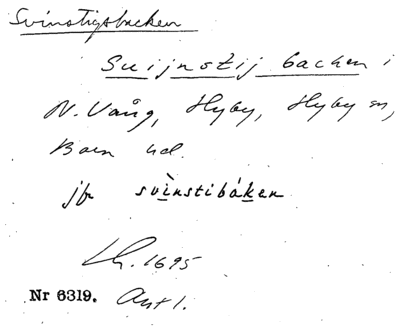 Svinstigsbacken
Suijnstij backen i
N. Vång, Hyby, Hyby sn,
Bara hd.
jfr svìnstibáken
Lh. 1695
Nr 6319. Ant 1.